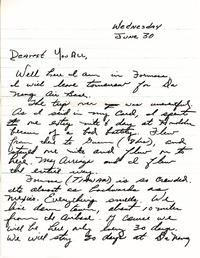 Wednesday
June 30
Dearest You All,
Well here I am in Formosa
I will leave tomorrow for Da
Nang Air Base.
The trip over was uneventful.
As I said in my card, I spent
an extra nite & day at
because of a bad battery. Flew
from there to Guam (7 hrs), and
stayed one nite and flew on to
here. Maj and I flew
the entire way.
Formosa (TAIWAN) is so crowded.
It's almost as backwards as
Mexico. Everything smells. We
live down town about 10 miles
from the Airbase. Of course we
will be here only being 30 days.
We will stay 30 days at Da Nang